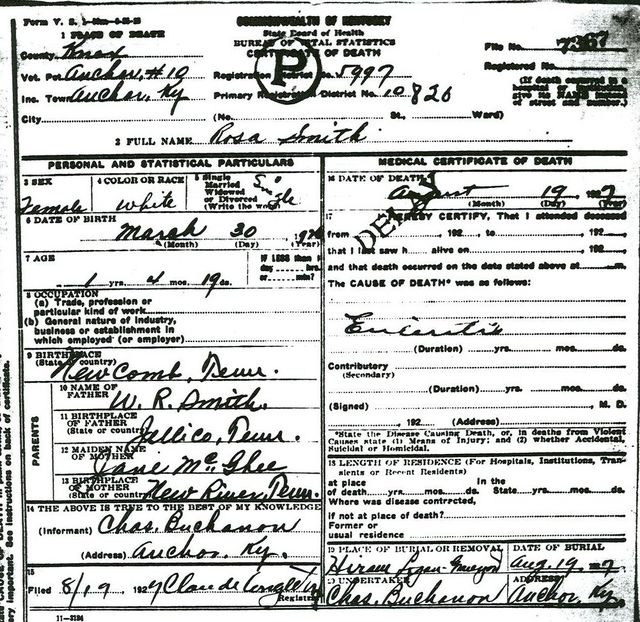 Form V. S.
COMMONWEALTH OF KENTUCKY
State Board of Health
BUREAU OF VITAL STATISTICS
CERTIFICATE OF DEATH
1 PLACE OF DEATH
County Knox
Vot. Pct. Anchor, #10
Inc. Town Anchor, Ky
City
(No. St., Ward)
Registration District No. 5997
Primary Registration District No. 10 820
P
File No. 7367
Registered No.
(If death occurred in a
hospital or institution
give its NAME instead
of street and number.)
2 FULL NAME Rosa Smith
PERSONAL AND STATISTICAL PARTICULARS
3 SEX
Female
4 COLOR OR RACE
White
5 Single
Married
Widowed
or Divorced
(Write the word)
Single
6 DATE OF BIRTH
March 30, 192
(Month) (Day) (Year)
7 AGE
1 yrs. 4 mos. 19 ds.
IF LESS than 1
day hrs.
or min?
8 OCCUPATION
(a) Trade, profession or
particular kind of work
(b) General nature of industry,
business or establishment in
which employed (or employer)
9 BIRTHPLACE
(State or country)
New Comb, Tenn.
PARENTS
10 NAME OF
FATHER
W. R. Smith.
11 BIRTHPLACE
OF FATHER
(State or country)
Jellico, Tenn.
12 MAIDEN NAME
OF MOTHER
Jane McGhee
13 BIRTHPLACE
OF MOTHER
(State or country)
New River, Tenn.
14 THE ABOVE IS TRUE TO THE BEST OF MY KNOWLEDGE
(Informant) Chas. Buchanon
(Address) Anchor, Ky.
15
Filed 8/19 1927 Claude
Registrar
11-3184
MEDICAL CERTIFICATE OF DEATH
16 DATE OF DEATH
August 19, 1927
(Month) (Day) (Year)
DELAY
17 I HEREBY CERTIFY, That I attended deceased
from , 192 , to , 192 ,
that I last saw h alive on , 192 ,
and that death occurred on the date stated above at m.
The CAUSE OF DEATH* was as follows:
(Duration) yrs. mos. ds.
Contributory
(Secondary)
(Duration) yrs. mos. ds.
(Signed) , M. D.
, 192 (Address)
*State the Disease Causing Death, or, in deaths from Violent
Causes state (1) Means of Injury; and (2) whether Accidental,
Suicidal or Homicidal.
18 LENGTH OF RESIDENCE (For Hospitals, Institutions, Tran-
sients or Recent Residents)
at place In the
of death yrs. mos. ds. State yrs. mos. ds.
Where was disease contracted,
if not at place of death?
Former or
usual residence
19 PLACE OF BURIAL OR REMOVAL
Hiram Logan
DATE OF BURIAL
Aug. 19 1927
20 UNDERTAKER
Chas. Buchanon
ADDRESS
Anchor, Ky.
See instructions on back of certificate.